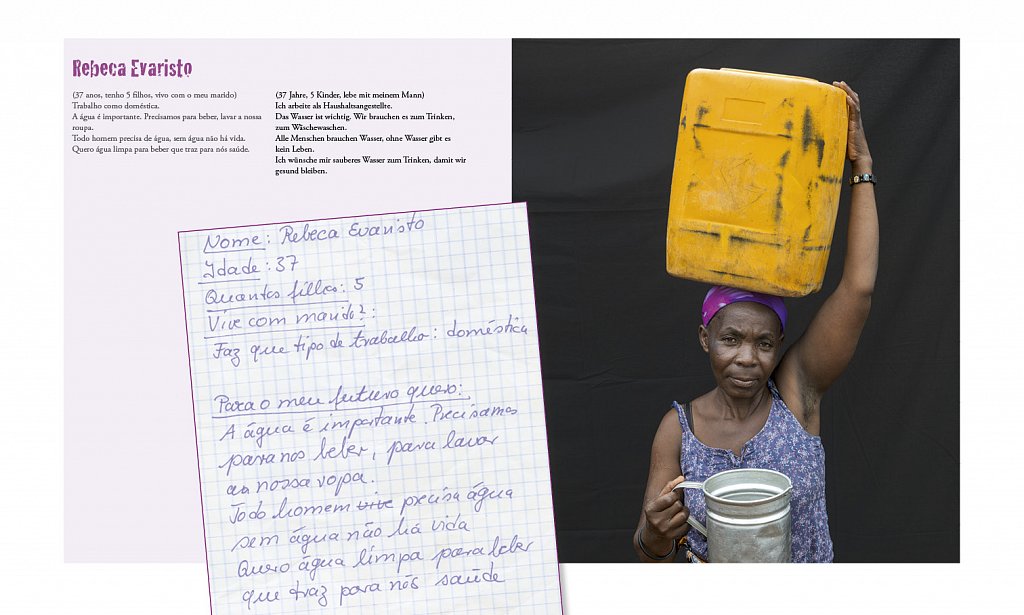 Rebeca Evaristo
(37 anos, tenho 5 filhos, vivo com o meu marido)
Trabalho como doméstica.
A água é importante. Precisamos para beber, lavar a nossa
roupa.
Todo homem precisa de água, sem água não há vida.
Quero água limpa para beber que traz para nós saúde.
(37 Jahre, 5 Kinder, lebe mit meinem Mann)
Ich arbeite als Haushaltsangestellte.
Das Wasser ist wichtig. Wir brauchen es zum Trinken,
zum Wäschewaschen.
Alle Menschen brauchen Wasser, ohne Wasser gibt es
kein Leben.
Ich wünsche mir sauberes Wasser zum Trinken, damit wir
gesund bleiben.
Nome: Rebeca Evaristo
Idade: 37
Quantos filhos: 5
Vive com marido?:
Faz que tipo de trabalho: doméstica
Para o meu futuro quero:
A água é importante. Precisamos
para nos beber, para lavar
a nossa ropa.
Todo homem vive precisa água
sem água não há vida
Quero água limpa para beber
que traz para nós saúde